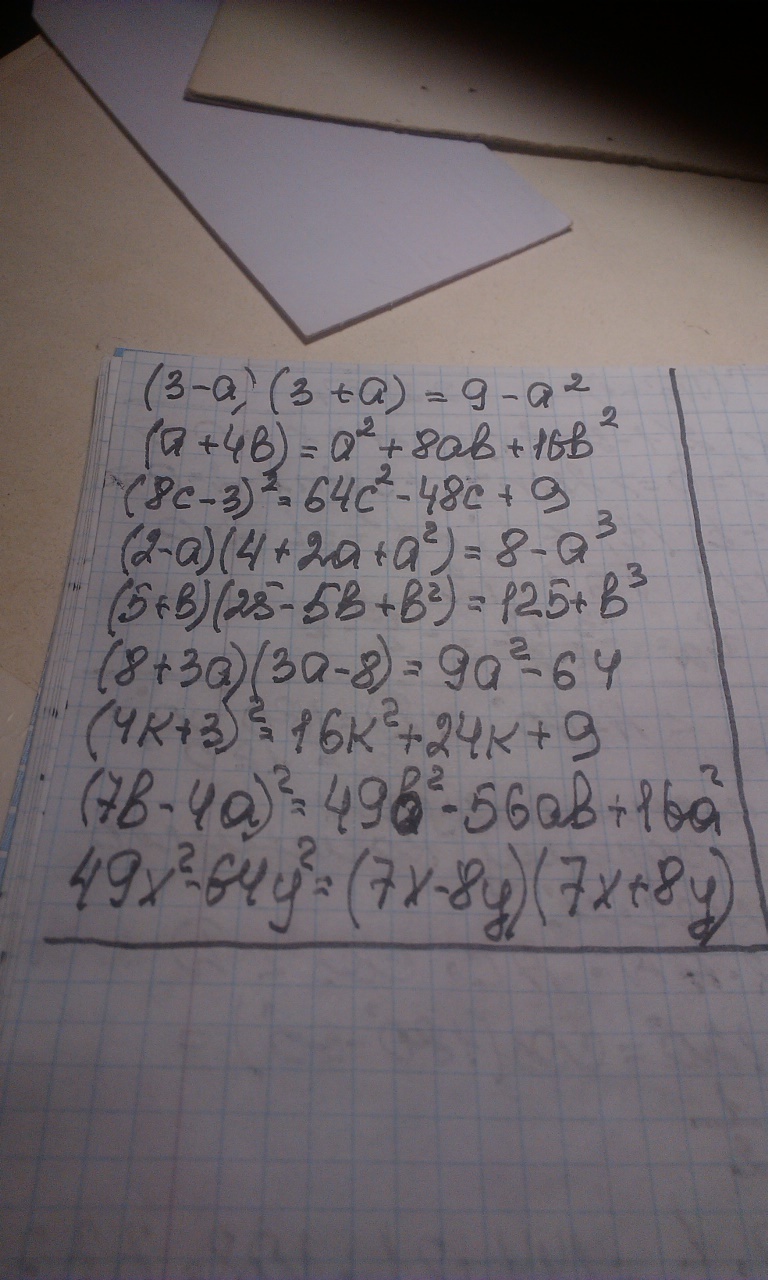 (3-a)(3+a) = 9-a²
(a+4b) = a²+8ab+16b²
(8c-3)² = 64c²-48c+9
(2-a)(4+2a+a²) = 8-a³
(5+b)(25-5b+b²) = 125+b³
(8+3a)(3a-8) = 9a²-64
(4k+3)² = 16k²+24k+9
(7b-4a)² = 49b²-56ab+16a²
49x²-64y² = (7x-8y)(7x+8y)